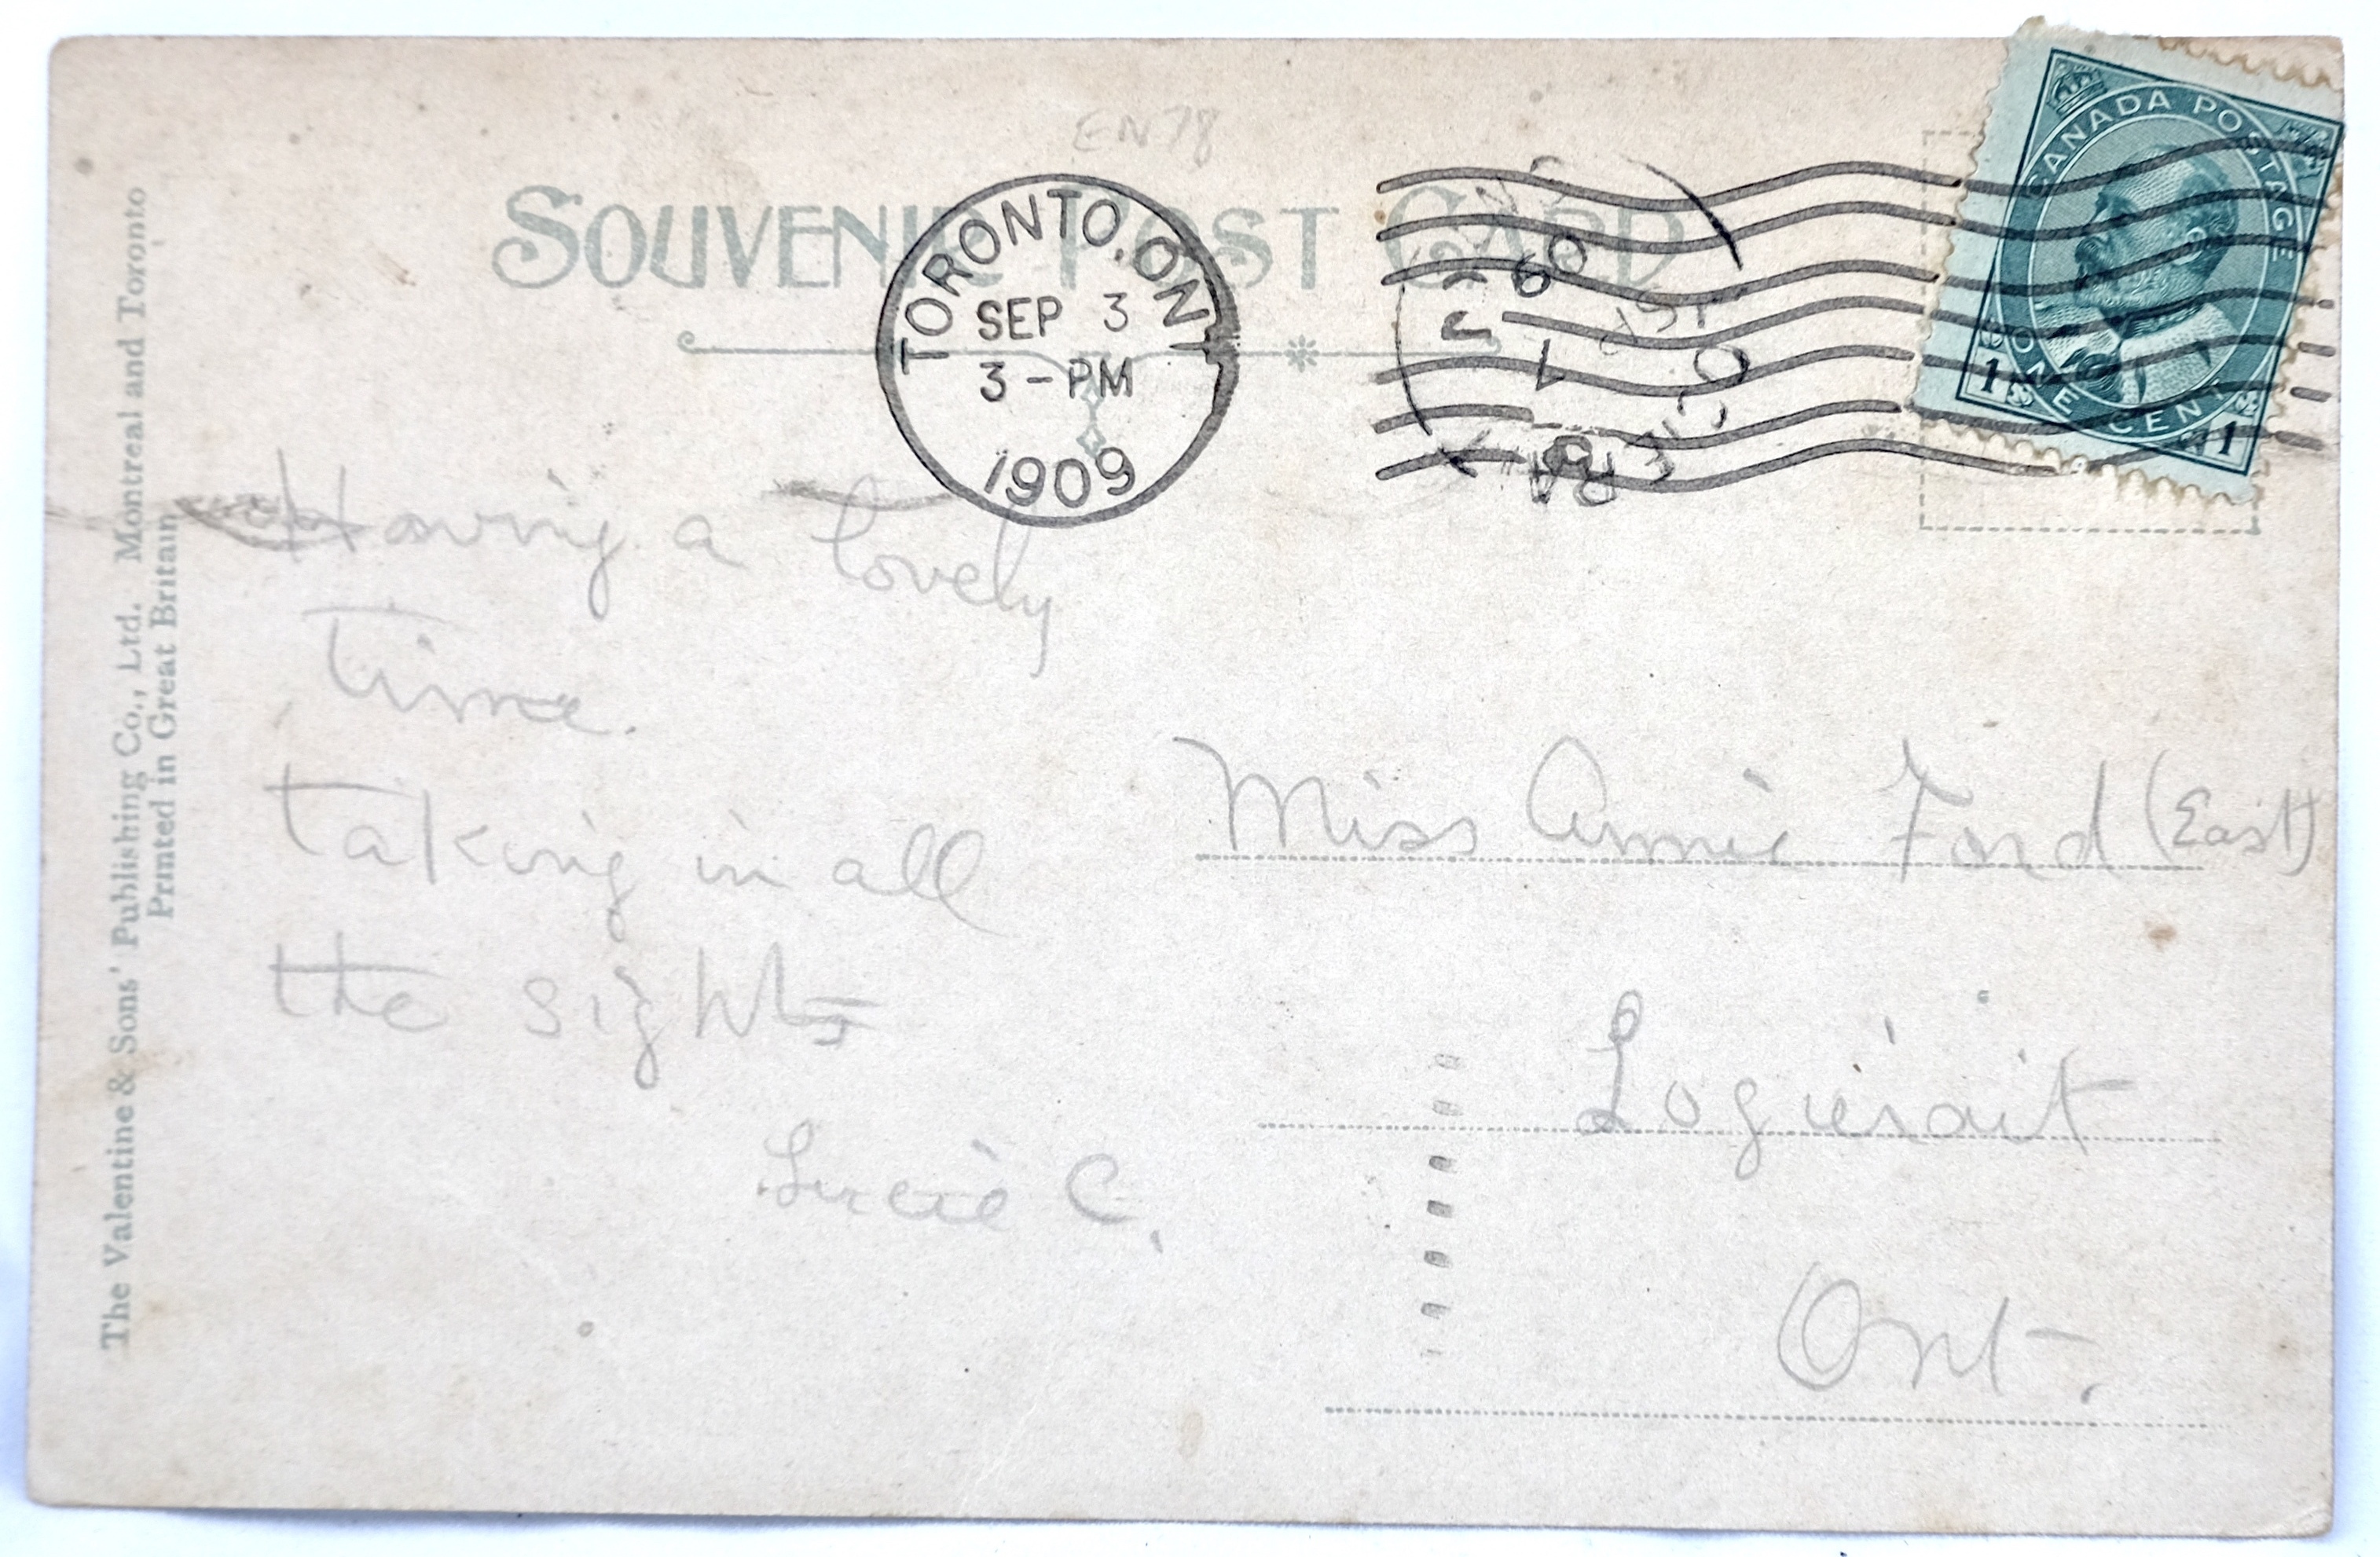 EN78
SOUVENIR POST CARD
TORONTO, ONT
SEP 3
3-PM
1909
CANADA POSTAGE
ONE CENT
1 1
Having a lovely
time.
taking in all
the sights
Lucie C.
Miss Annie Ford (East)
Logierait
Ont.
The Valentine & Sons' Publishing Co., Ltd. Montreal and Toronto
Printed in Great Britain